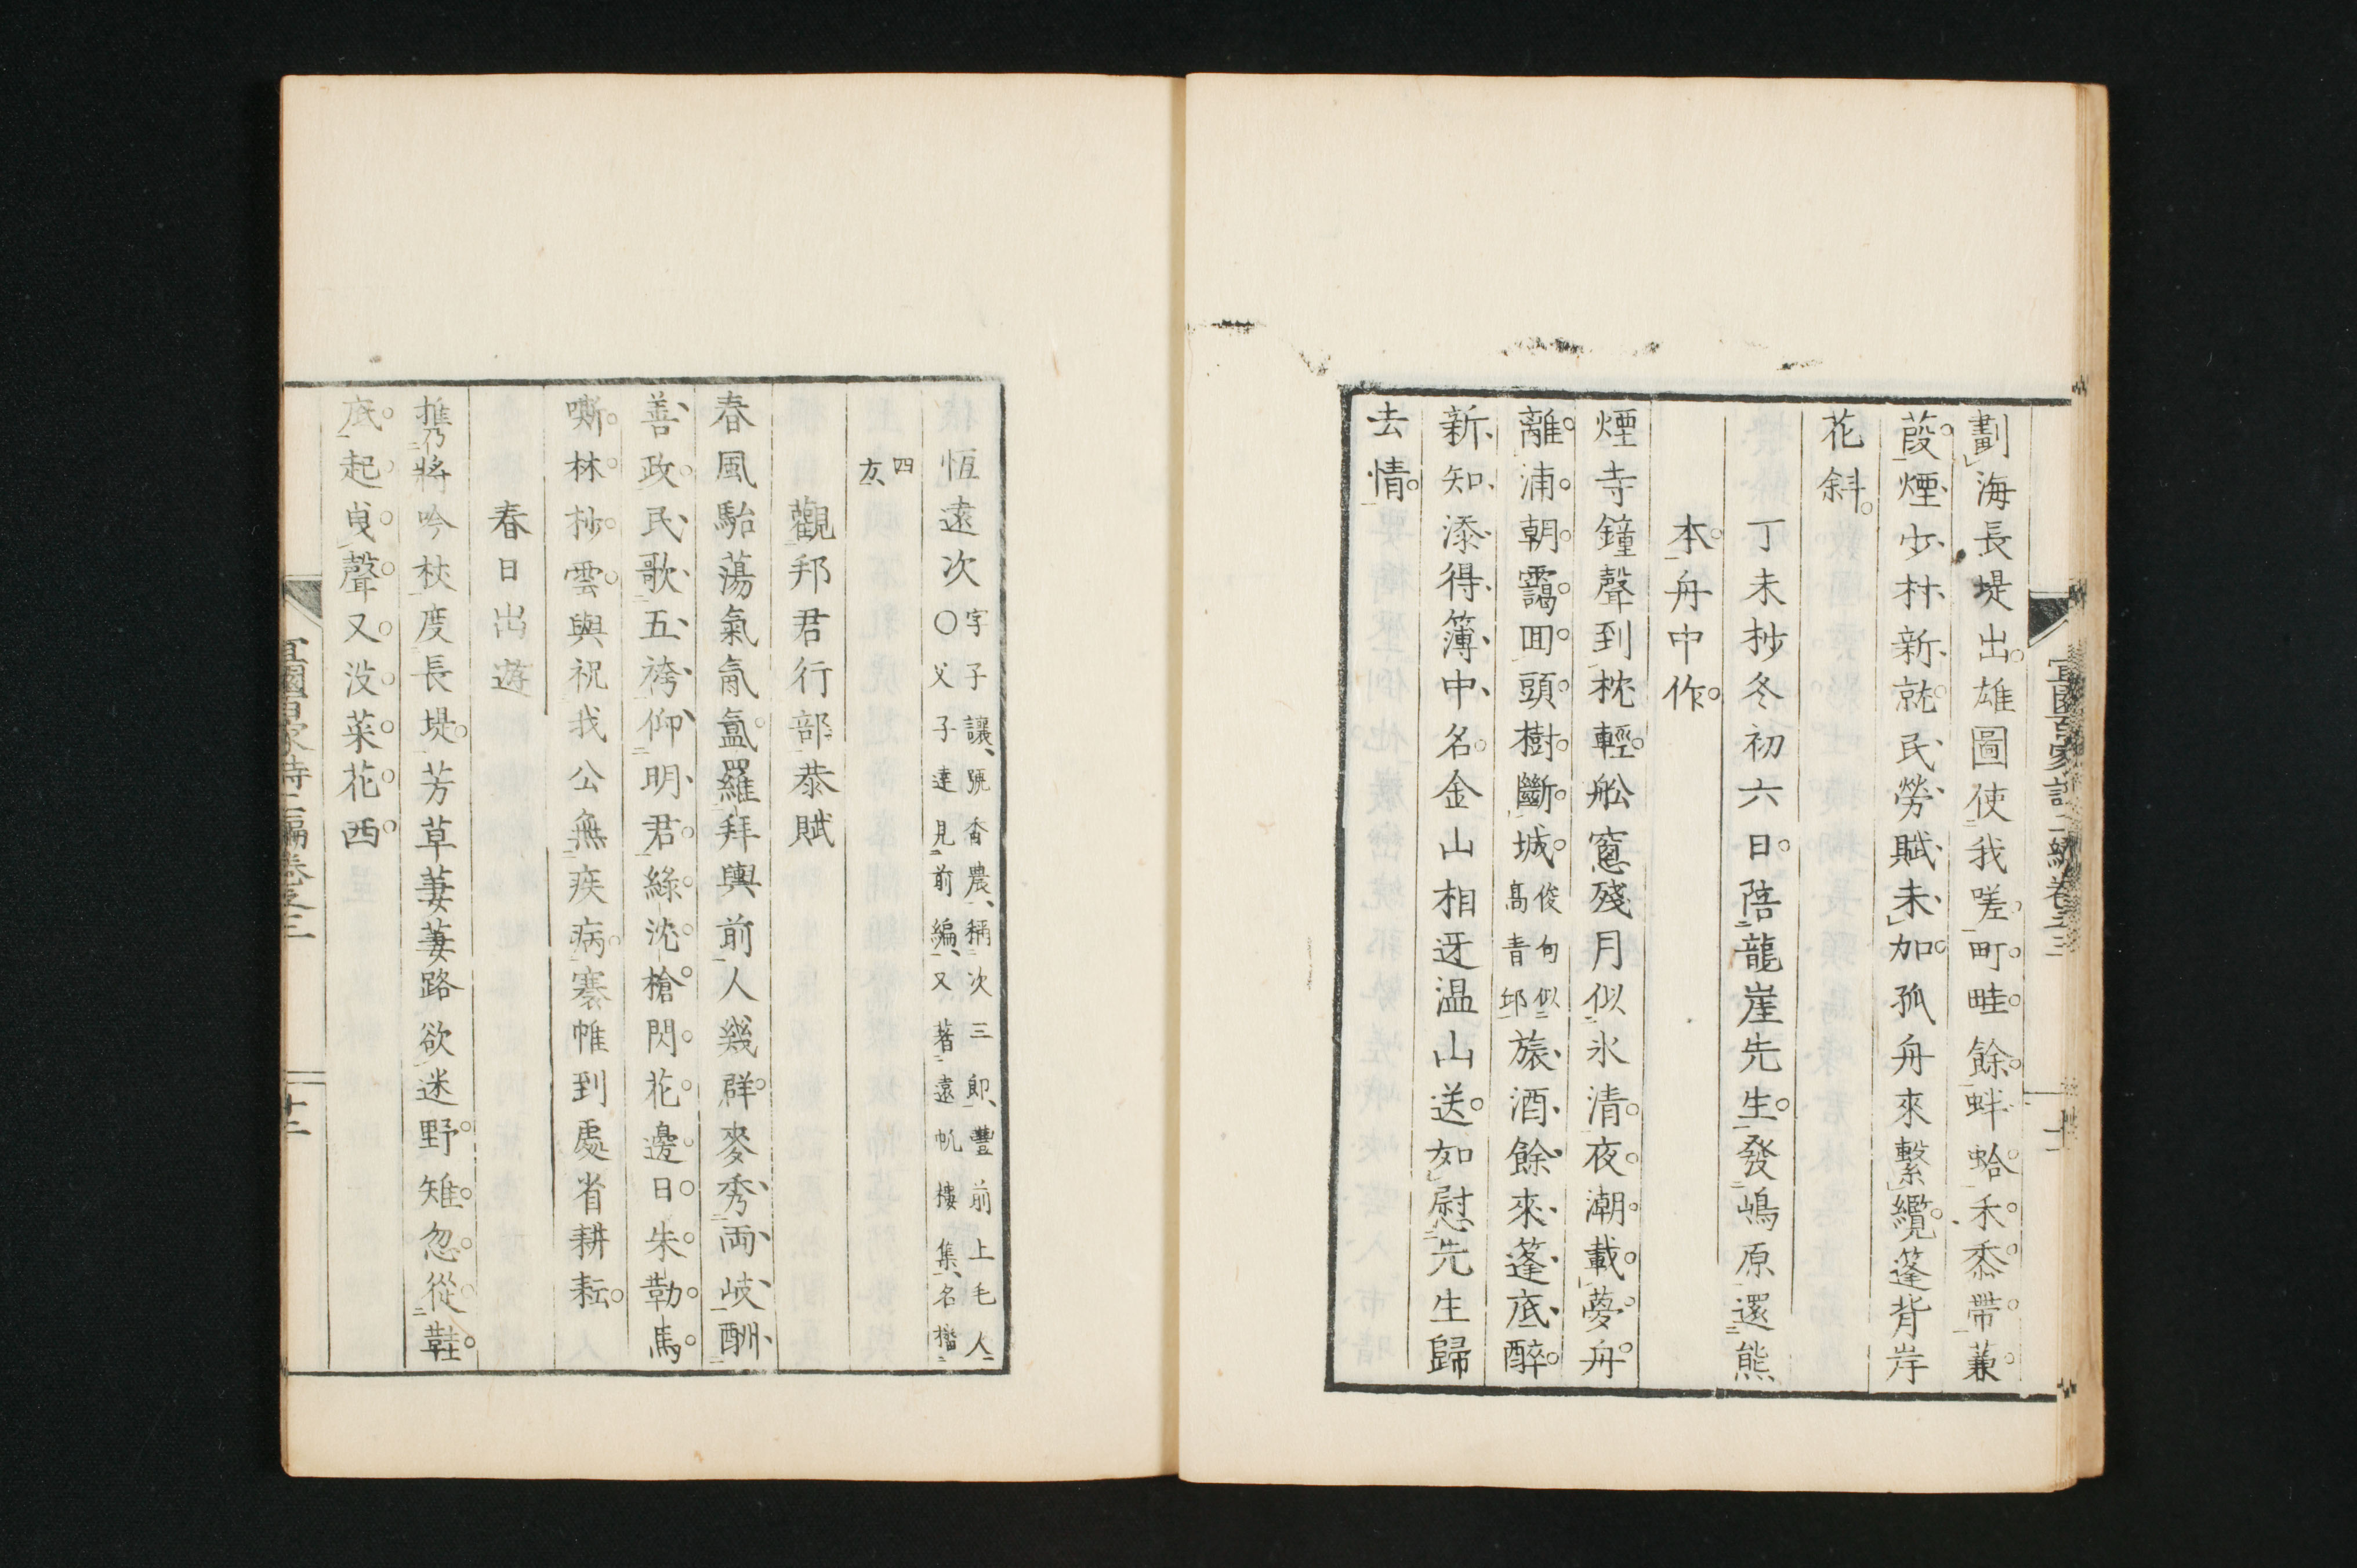 劃海長堤出雄圖使我嗟町畦餘蚌蛤禾黍帶蒹
葭煙少村新就民勞賦未加孤舟來繫纜篷背岸
花斜
丁未杪冬初六日陪龍崖先生發嶋原還熊
本舟中作
煙寺鐘聲到枕輕舩窻殘月似氷清夜潮載夢舟
離浦朝靄囬頭樹斷城俊句似高青邱旅酒餘來篷底醉
新知添得簿中名金山相迓温山送如慰先生歸
去情
宜園百家詩二編卷之三
十一
恆遠次〇字子讓號香農稱次三郎豐前上毛人
父子達見前編又著遠帆樓集名權
四方
觀邦君行部恭賦
春風駘蕩氣氤氳羅拜輿前人幾群麥秀兩岐酬
善政民歌五袴仰明君綠沈槍閃花邊日朱勒馬
嘶林杪雲與祝我公無疾病褰帷到處省耕耘
春日出遊
擕將吟杖度長堤芳草萋萋路欲迷野雉忽從鞋
底起曳聲又沒菜花西
宜園百家詩二編卷之三
十二